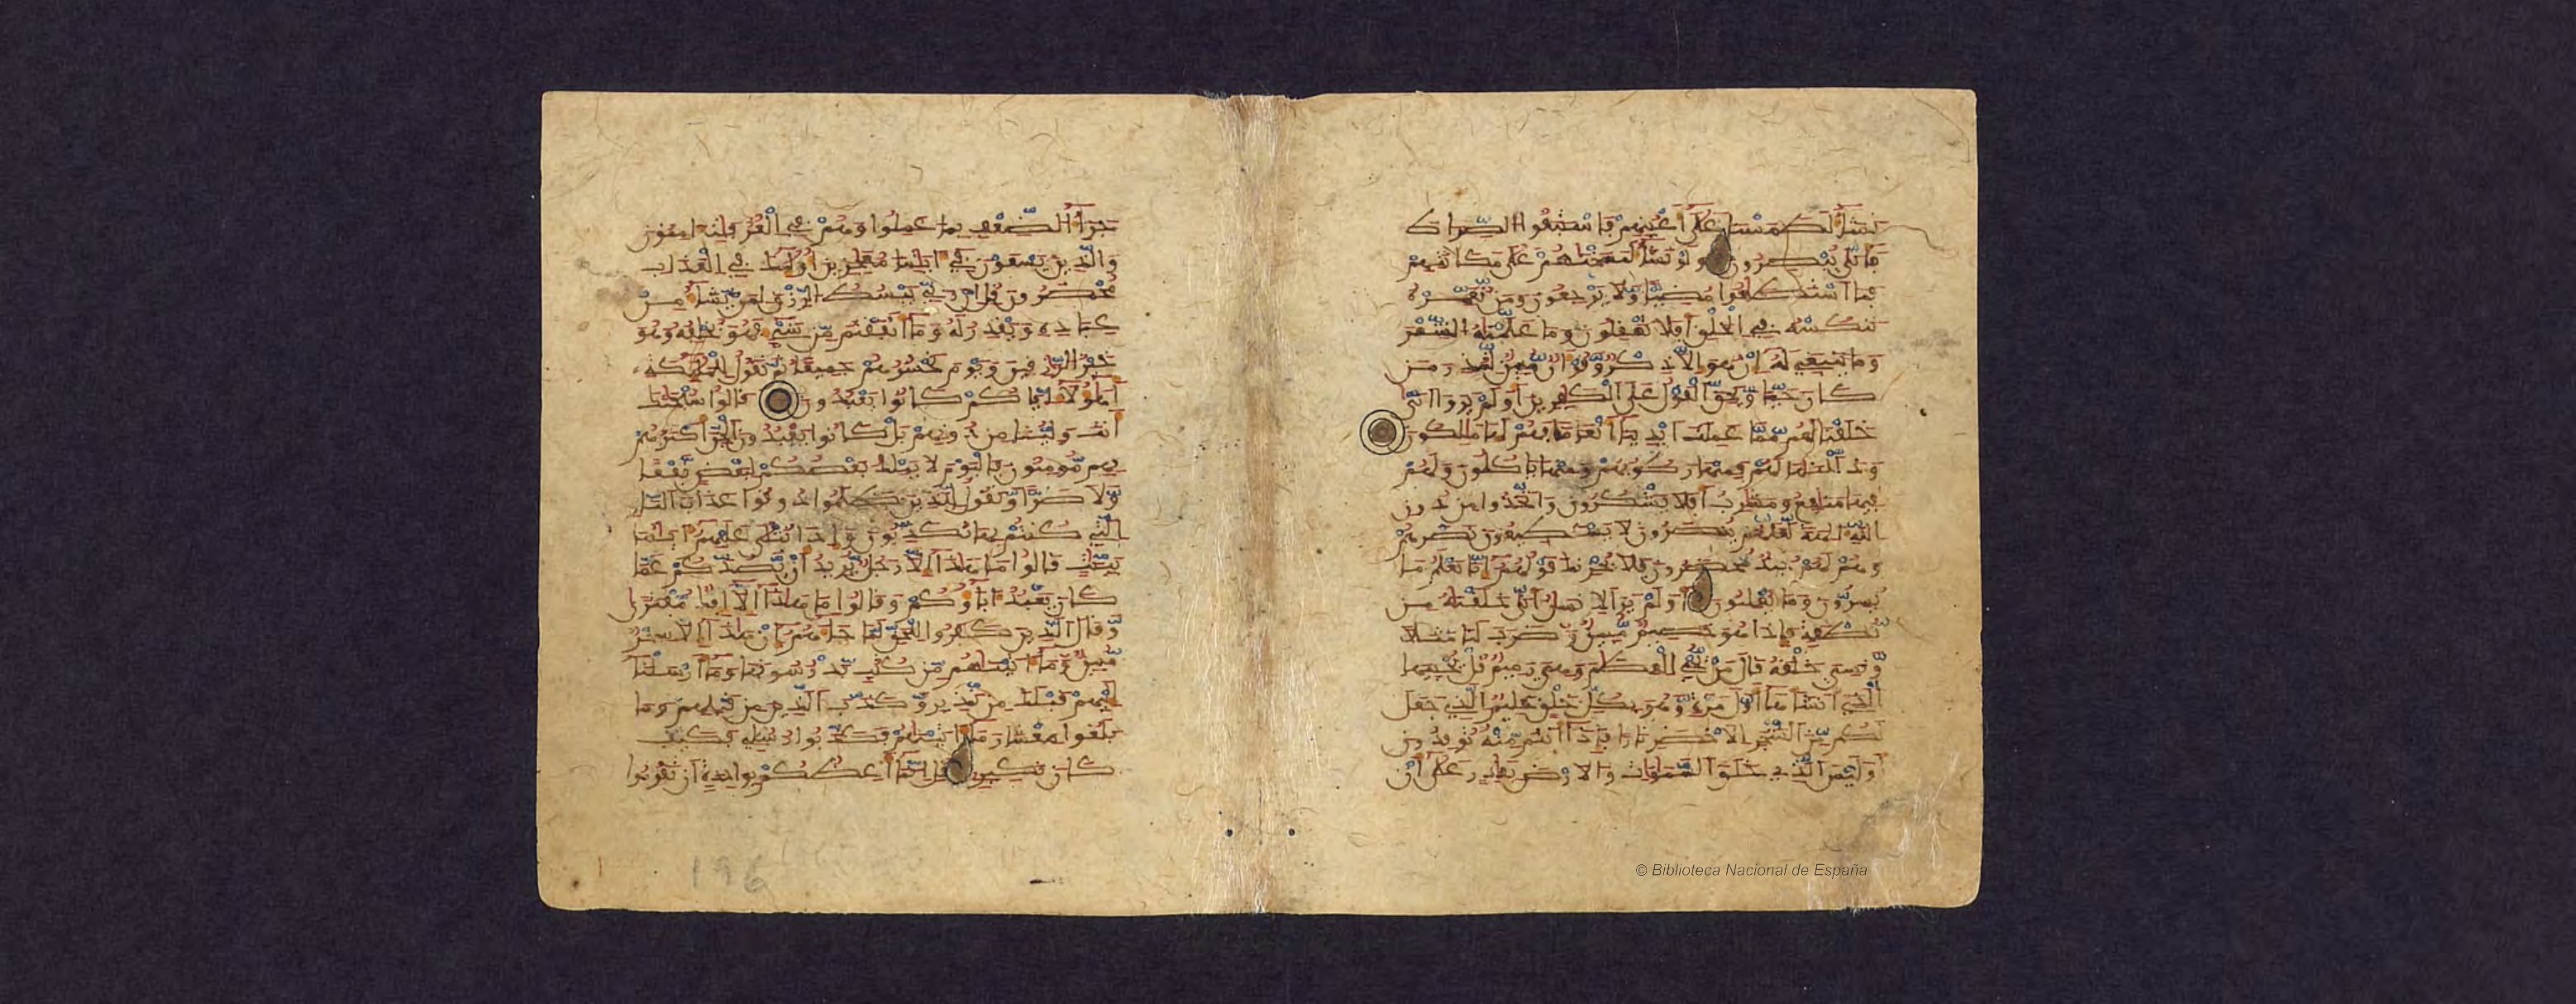 نشاء لطمسنا على اعينهم فاستبقوا الصراط
فانى يبصرون ولو نشاء لمسخنهم على مكانتهم
فما استطاعوا مضيا ولا يرجعون ومن نعمره
ننكسه في الخلق افلا تعقلون وما علمنه الشعر
وما ينبغي له ان هو الا ذكر وقرءان مبين لتنذر من
كان حيا ويحق القول على الكفرين اولم يروا انا
خلقنا لهم مما عملت ايدينا انعاما فهم لها ملكون
وذللنها لهم فمنها ركوبهم ومنها ياكلون ولهم
فيها منافع ومشارب افلا يشكرون واتخذوا من دون
الله ءالهة لعلهم ينصرون لا يستطيعون نصرهم
وهم لهم جند محضرون فلا يحزنك قولهم انا نعلم ما
يسرون وما يعلنون اولم ير الانسن انا خلقنه من
نطفة فاذا هو خصيم مبين وضرب لنا مثلا
ونسي خلقه قال من يحي العظم وهي رميم قل يحييها
الذي انشاها اول مرة وهو بكل خلق عليم الذي جعل
لكم من الشجر الاخضر نارا فاذا انتم منه توقدون
اوليس الذي خلق السموات والارض بقادر على ان
جزاء الضعف بما عملوا وهم في الغرفت ءامنون
والذين يسعون في ءايتنا معجزين اولئك في العذاب
محضرون قل ان ربي يبسط الرزق لمن يشاء من
عباده ويقدر له وما انفقتم من شيء فهو يخلفه وهو
خير الرازقين ويوم نحشرهم جميعا ثم نقول للملئكة
اهؤلاء اياكم كانوا يعبدون قالوا سبحنك
انت ولينا من دونهم بل كانوا يعبدون الجن اكثرهم
بهم مومنون فاليوم لا يملك بعضكم لبعض نفعا
ولا ضرا ونقول للذين ظلموا ذوقوا عذاب النار
التي كنتم بها تكذبون واذا تتلى عليهم ءايتنا
بينت قالوا ما هذا الا رجل يريد ان يصدكم عما
كان يعبد ءاباؤكم وقالوا ما هذا الا افك مفترى
وقال الذين كفروا للحق لما جاءهم ان هذا الا سحر
مبين وما ءاتينهم من كتب يدرسونها وما ارسلنا
اليهم قبلك من نذير وكذب الذين من قبلهم وما
بلغوا معشار ما ءاتينهم فكذبوا رسلي فكيف
كان نكير قل انما اعظكم بواحدة ان تقوموا
196
© Biblioteca Nacional de España